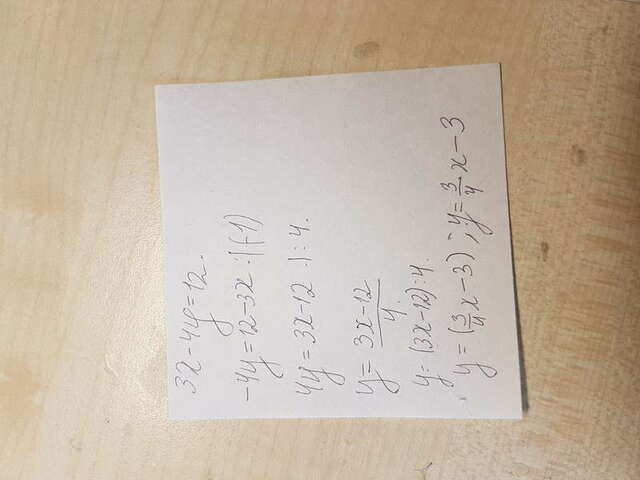 3x-4y=12.
-4y=12-3x :|(-1)
4y=3x-12 |:4.
y=\frac{3x-12}{4}.
y=(3x-12):4.
y=(\frac{3}{4}x-3); y=\frac{3}{4}x-3